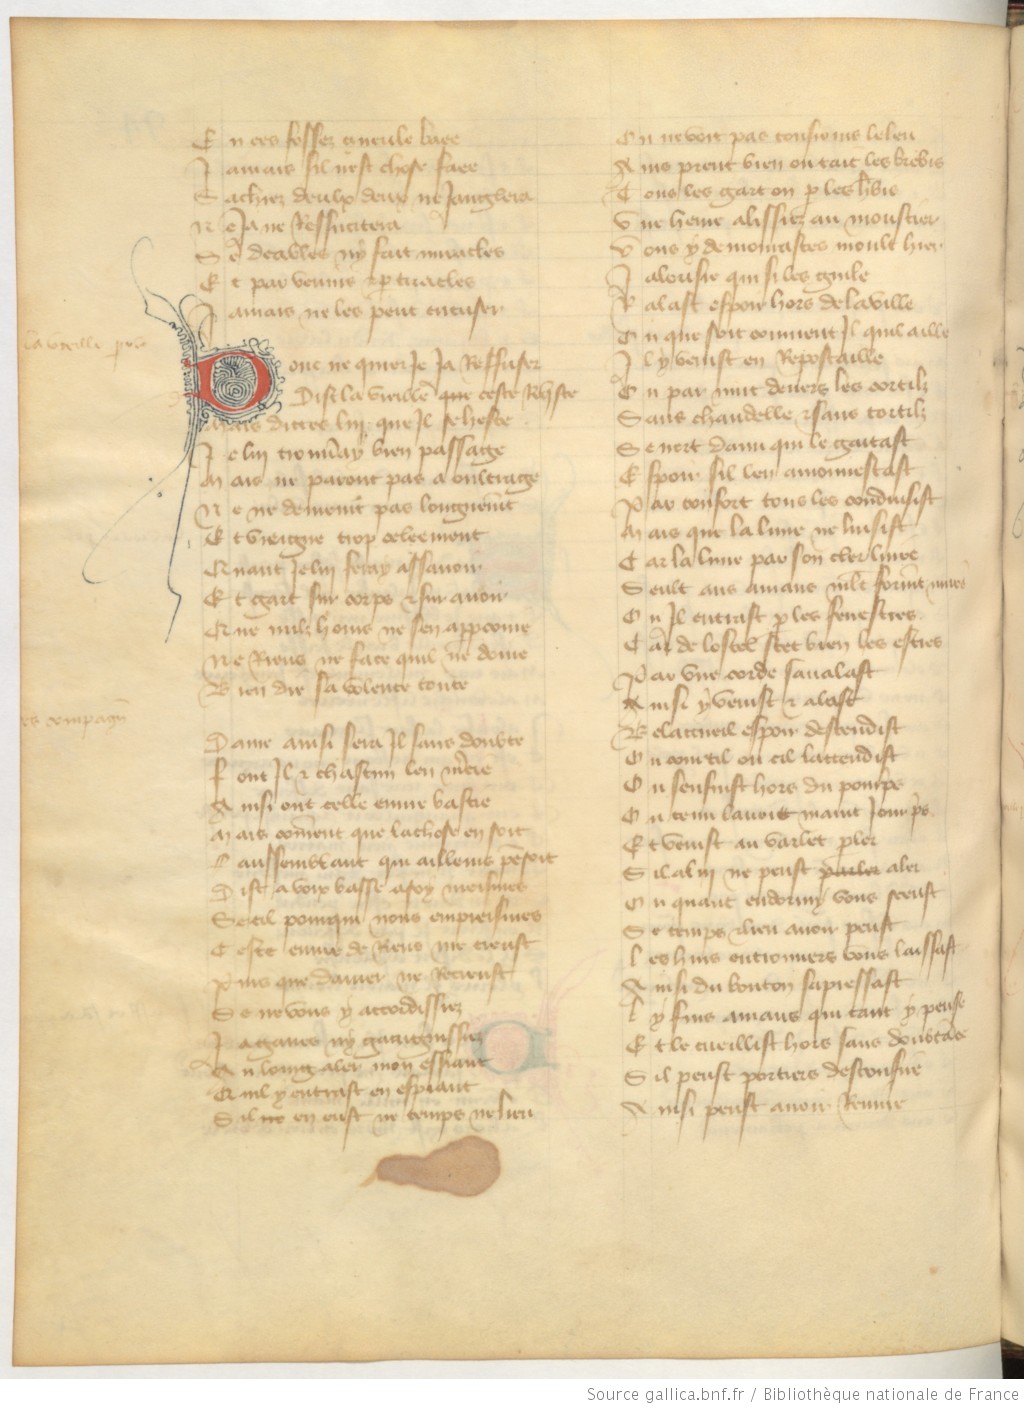 En ces fossez gueule baee
Jamais sil nest chose faee
Sachiez deulx deux ne Janglera
Ne Ja ne Ressucitera
Se deables ny fait miracles
Et par venins et par triacles
Jamais ne les peut encuser
la vieille parle
Donc ne quier Je Ja Reffuser
Dist la vieille que ceste Rqste
Mais dictes luy que Il se heste
Je luy trouveray bien passage
Mais ne parout pas a oultrage
Ne ne demeurt pas longuemt
Et viengne trop celeement
Quant Je luy feray assavoir
Et gart sur corps et sur avoir
Que nulz homs ne sen apperçoive
Ne Riens ne face quil ne doive
Bien die sa volente toute
Dame ainsi sera Il sans doubte
Font Il et chascun len mercie
Ainsi ont celle euvre bastie
Mais coment que la chose en soit
Faussemblant qui ailleurs pensoit
Dist a voix basse a soy meismes
Se cil pour qui nous empreismes
Ceste euvre de Riens me creust
Puis que damer ne Recreust
Se ne vous y accordissiez
Ja gaires ny gaaignissiez
Au loing aler mon essiant
Quil y entrast en espiant
Sil en eust ne temps ne lieu
On ne voit pas tousiours le leu
Ains prent bien ou tait les brebis
Tous les gart on p les herbis
Une heure alissiez au moustier
Vous y demourastes moult hier
Jalousie qui si les guile
Ralast espoir hors de la ville
Ou que soit convient Il quil aille
Il y venist en Repostaille
Ou par nuit devers les cortilz
Sans chandelle et sans tortilz
Se nert damy qui le gaitast
Espoir sil len amonnestast
Par confort tous les conduisist
Mais que la lune ne luisist
Car la lune par son cler luire
Seult aus amans mlt souvent nuire
Ou Il entrast p les fenestres
Car de lostel scet bien les estres
Par une corde savalast
Ainsi y venist et alast
Belaccueil espoir descendist
Ou courtil ou cil lattendist
Ou senfuist hors du pourpris
Ou tenu lavoit maint Jour pris
Et venist au varlet pler
Sil a luy ne peust parler aler
Ou quant endormy vous sceust
Se temps et lieu avoir peust
Les huis entrouvers vous laissast
Ainsi du bouton sapressast
Ly fins amans qui tant y pense
Et le cueillist hors sans doubtance
Sil peust portiers desconfire
Ainsi peust avoir